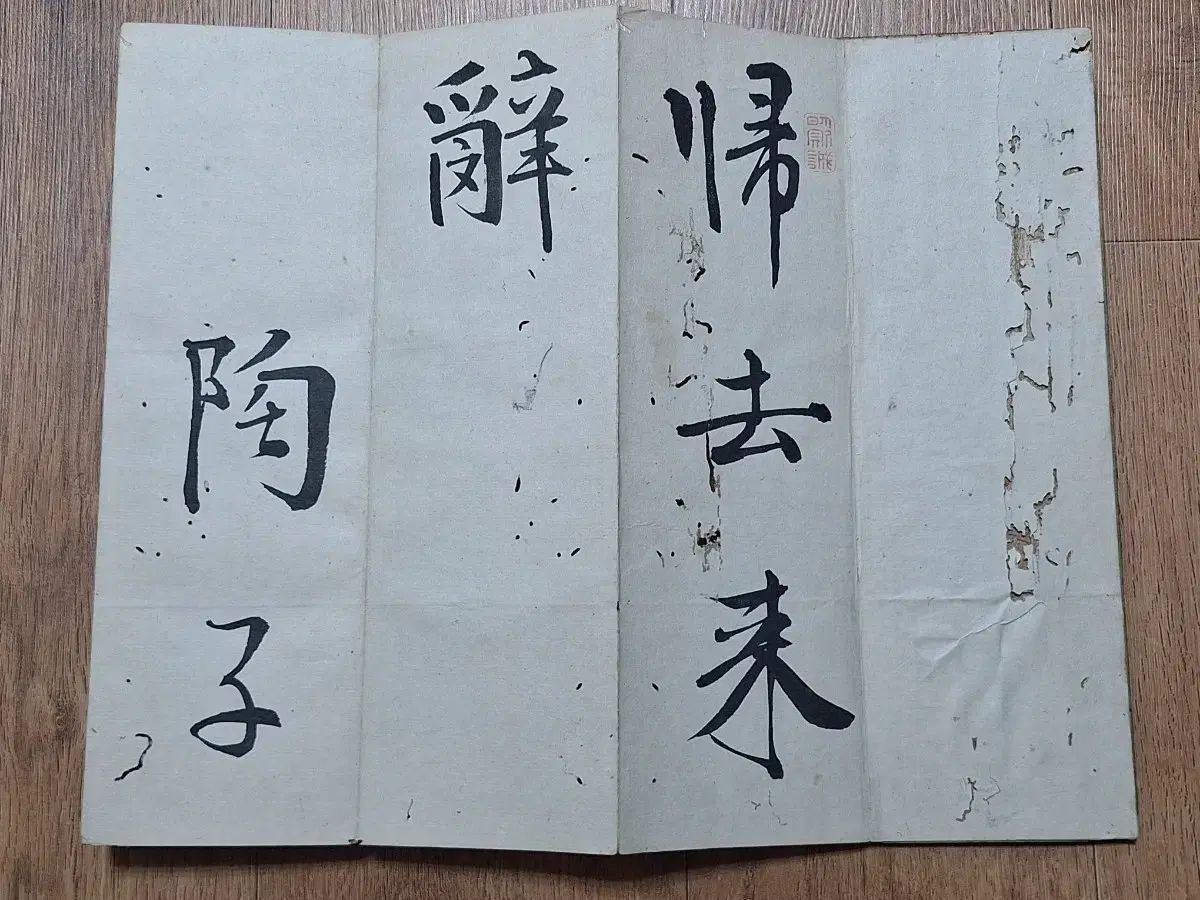 帰去来
辭
陶子